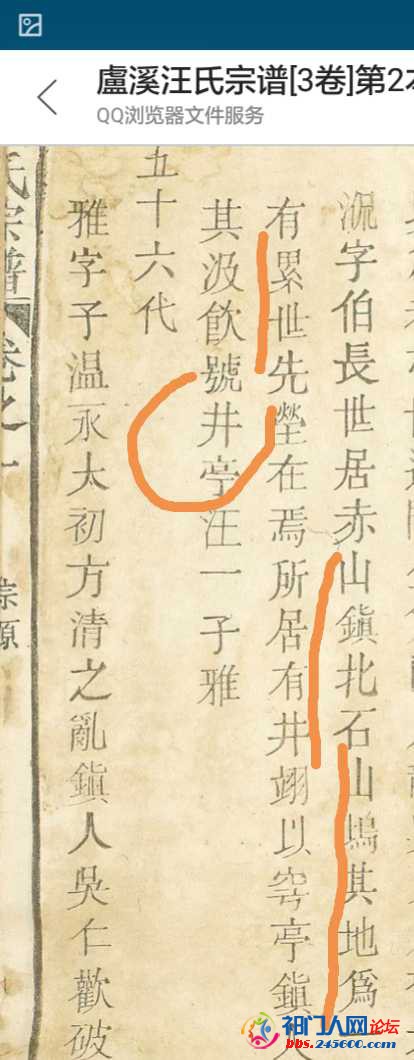 盧溪汪氏宗谱[3卷]第2本
QQ浏览器文件服务
字伯長世居赤山鎮北石山塢其地爲
有累世先塋在焉所居有井翊以穹亭鎮人
其汲飲號井亭汪一子雅
五十六代
雅字子温一永太初方清之亂鎮人吳仁歡破
氏宗譜卷之一
宗源
祁门人网论坛
bbs.245600.com